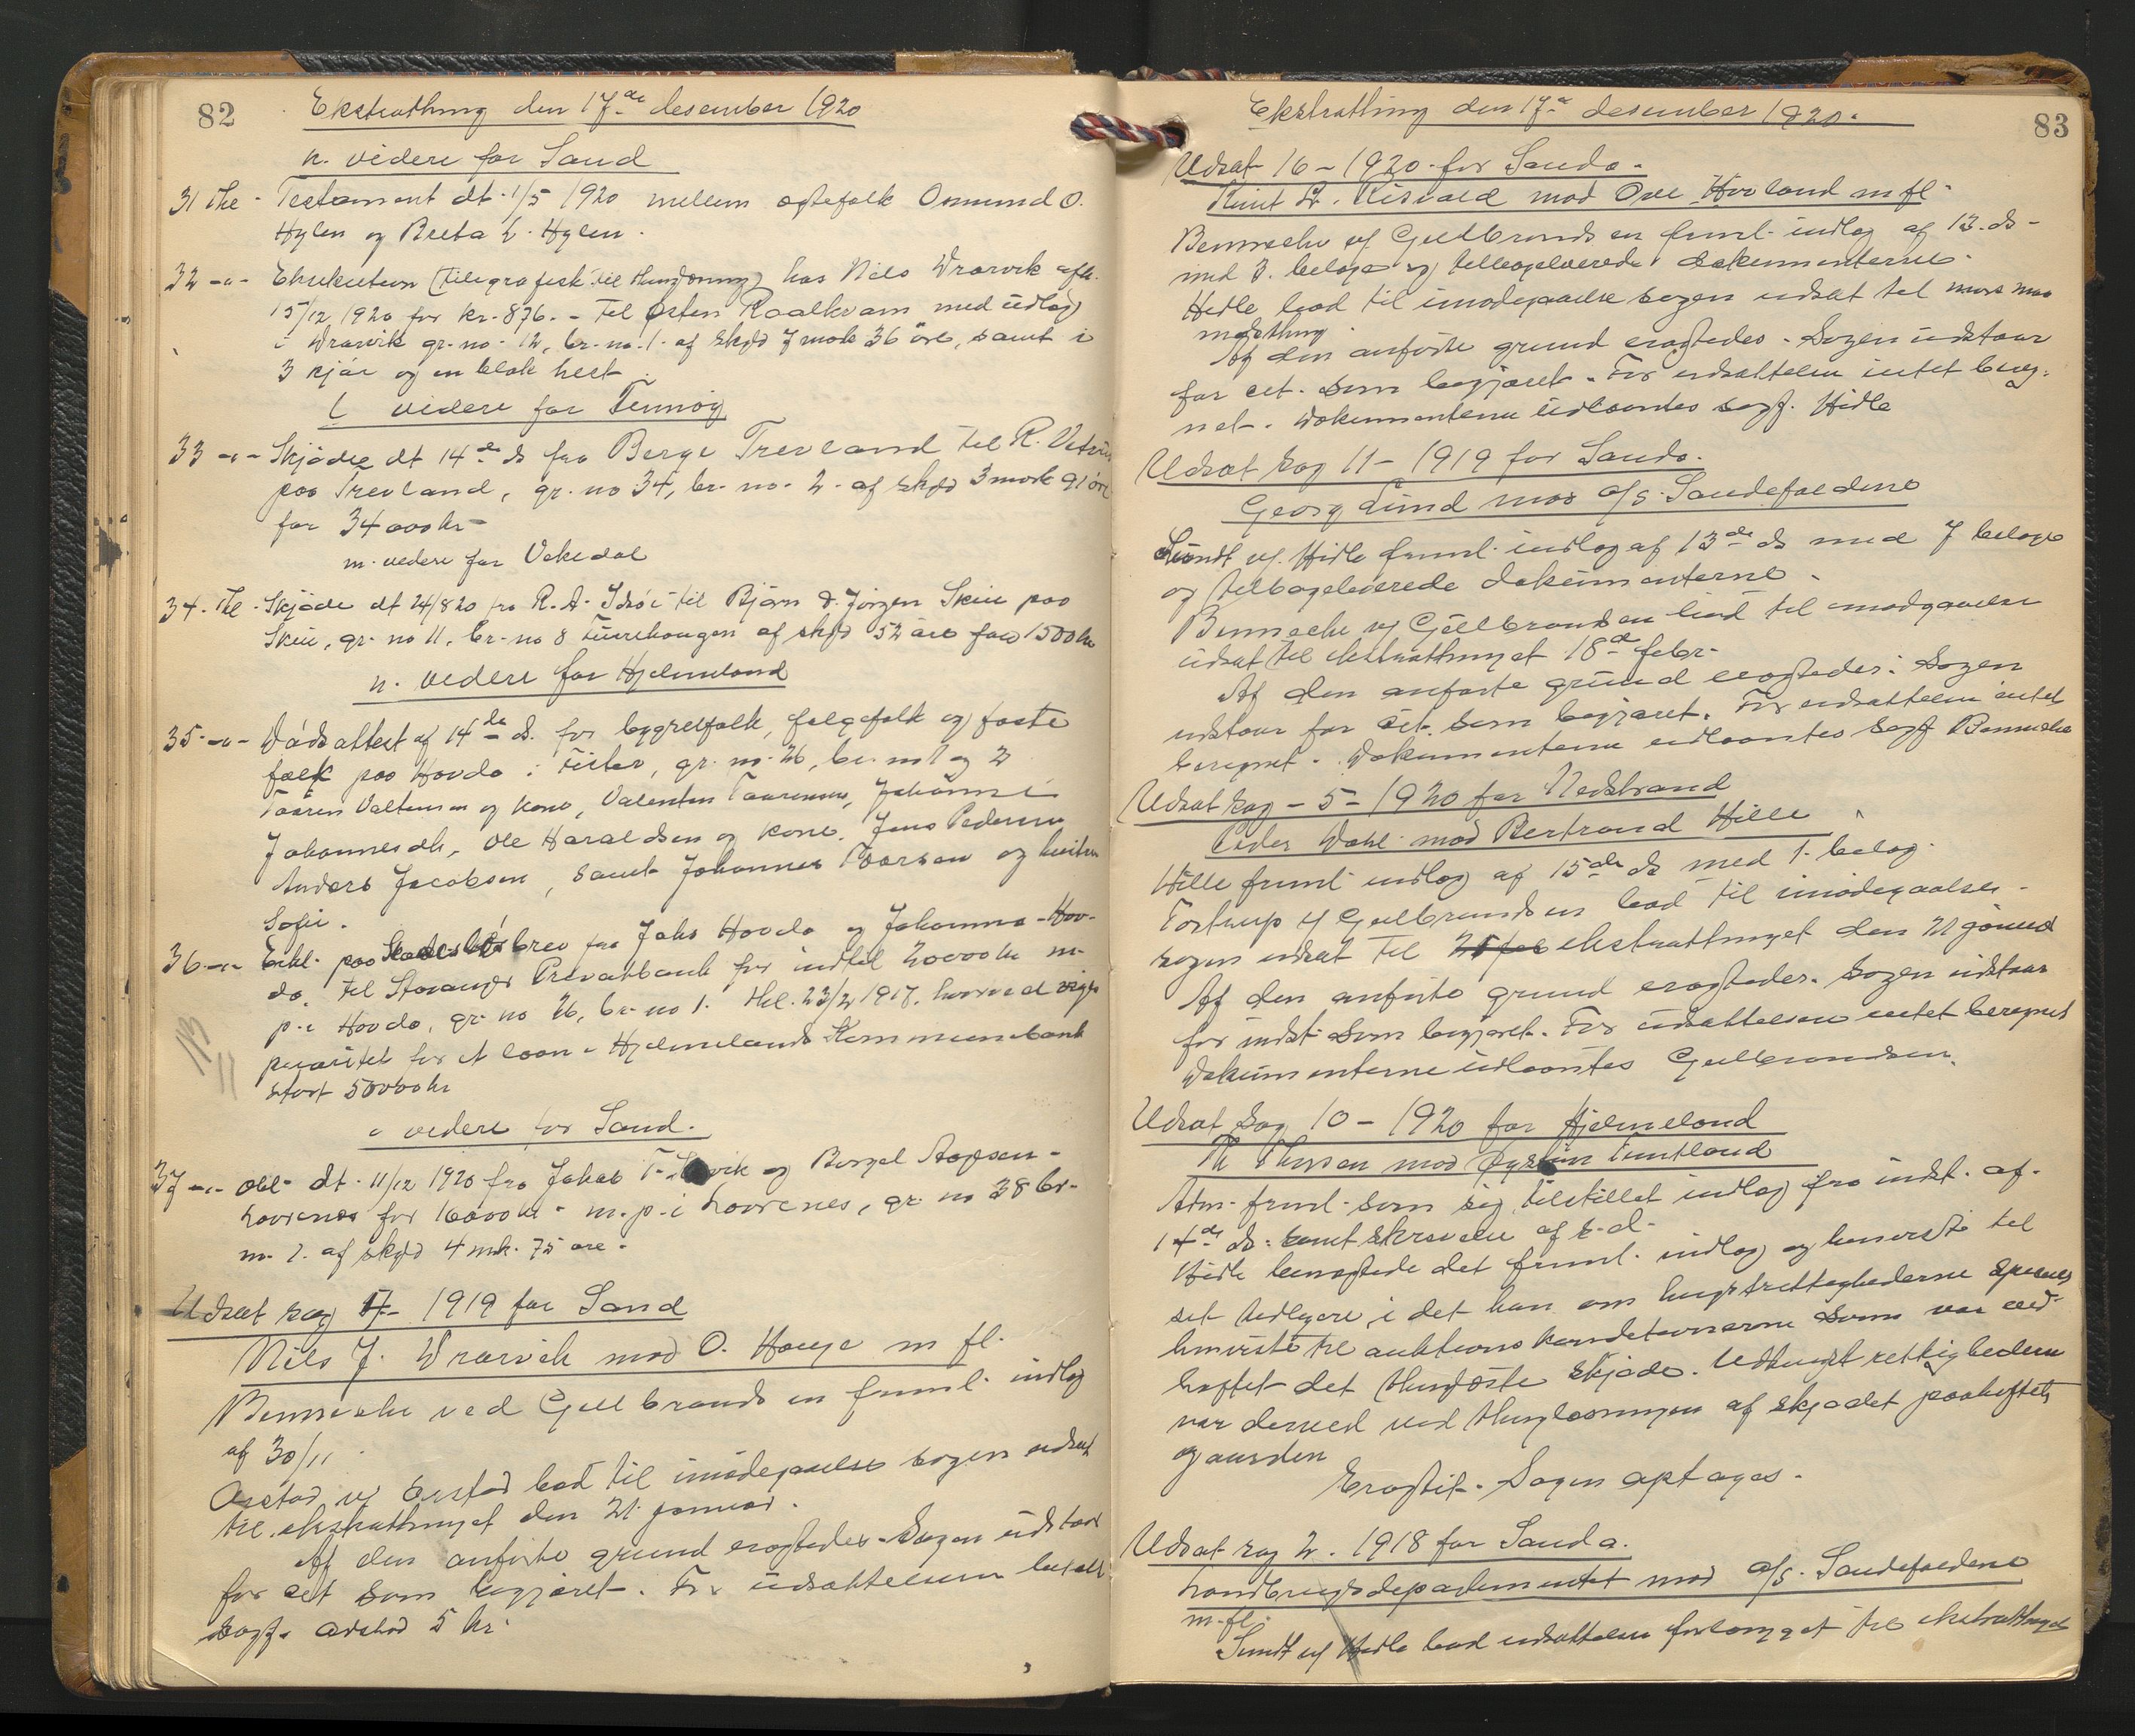 82
Ekstrathing den 17de desember 1920
n. videre for Sand
31 the - Testament dt. 1/5 1920 mellem ægtefolk Osmund O.
Hylen og Breta L. Hylen.
32 -"- Eksekution (telegrafisk til thinglæsning) hos Nils Vraavik afh.
15/12 1920 for kr. 876.- til Østen Raalkvam med udlæg
i Vraavik gr. no. 12, br. no. 1. af skyld 7 mark 36 øre, samt i
3 kjør og en blak hest.
l videre for Finnøy
33 -"- Skjøde dt 14de ds fra Berge Trevland til R.
paa Trevland, gr. no 34, br. no. 2. af skyld 3 mark 91 øre
for 34000 kr
m. videre for Vikedal
34. the - Skjøde dt 24/8 20 fra R. A. Idsøe til Bjørn & Jørgen Skeie paa
Skeie, gr. no 11, br. no 8 af skyld 52 øre for 1500 kr
n. videre for Hjelmeland
35 -"- Dødsattest af 14de ds. for bygselfolk, følgefolk og foste
folk paa Hovda i Fister, gr. no. 26, br. no 1 og 2
Taaren Valtensen og kone, Valentin Taarensen, Johanne
Johannesdtr, Ole Haraldsen og kone, Jens Pedersen
Anders Jacobsen, samt Johannes Toorsen og
Sofie.
36 -"- Erkl. paa Skadesløsbrev fra Johs Hovda og Johanna Hov-
da, til Stavanger Privatbank for indtil 20000 kr m.
p. i Hovda, gr. no 26, br. no 1. thl. 23/2 1917. hvorved viger
prioritet for et laan i Hjelmelands Kommunebank
stort 50000 kr
i videre for Sand.
37 -"- obl. dt. 11/12 1920 fra Jakob T. og Borgel Aagsen
Lovrenes for 16000 kr m. p. i Lovrenes, gr. no 38 br.
no. 1. af skyld 4 mrk. 75 øre.
Udsat sag 17 - 1919 for Sand
Nils J. Vraavik mod O. Hauge m fl.
Bennesche ved Gulbrandsen freml. indlæg
af 30/11.
Aarstad v/ bad til imødegaaelse sagen udsat
til ekstrathinget den 21 januar.
Af den anførte grund eragtedes - Sagen udstaar
for cit som begjæret. For udsættelsen betalt
sagf. Aarstad 5 kr.
83
Ekstrathing den 17de desember 1920.
Udsat 16 - 1920 for Sauda.
Knut L. Risvold mod Ove Hovland m fl.
Bennesche v/ Gulbrandsen freml. indlæg af 13. ds
med 3. belage og tilbageleverede dokumenterne.
Hidle bad til imødegaaelse sagen udsat til
Af den anførte grund eragtedes. Sagen udstaar
for cit. som begjæret. For udsættelsen intet bereg-
net. Dokumenterne udlaantes sagf. Hidle
Udsat sag 11 - 1919 for Sauda.
Georg Lund mod a/s. Saudefaldene
Sundt v/ Hidle freml. indlæg af 13de ds med 7 belage
og tilbageleverede dokumenterne.
Bennesche v/ Gulbrandsen bad til imødegaaelse
udsat til ekstrathinget 18de febr.
Af den anførte grund eragtedes: Sagen
udstaar for cit. som begjæret. For udsættelsen intet
beregnet. Dokumenterne udlaantes sagf Bennesche
Udsat sag - 5 - 1920 for Nedstrand
Peder Dahl mod Bertrand Hille
Hille freml indlæg af 15de ds med 1. belag.
Tostrup v/ Gulbrandsen bad til imødegaaelse
sagen udsat til ekstrathinget den 21 januar
Af den anførte grund eragtedes. Sagen udstaar
for indst. som begjæret. For udsættelsen intet beregnet
Dokumenterne udlaantes Gulbrandsen.
Udsat sag 10 - 1920 for Hjelmeland
Th Thorsen mod Øystein Tuntland
Adm. freml. som sig tilstillet indlæg fra indst. af
14de ds. samt skrivelse af s. d.
Hidle benægtede det freml. indlæg og henviste til
sit tidligere, i det han om hugstrettighederne specielt
henviste til auktionskonditionerne som var ved-
heftet det thinglæste skjøde. Udhugstrettighederne
var derved ved thinglæsningen af skjødet paaheftet
gaarden
Eragtet. Sagen optages.
Udsat sag 2. 1918 for Sauda.
Landbrugsdepartementet mod a/s. Saudefaldene
m. fl.
Sundt v/ Hidle bad udsættelsen forlænget til ekstrathinget